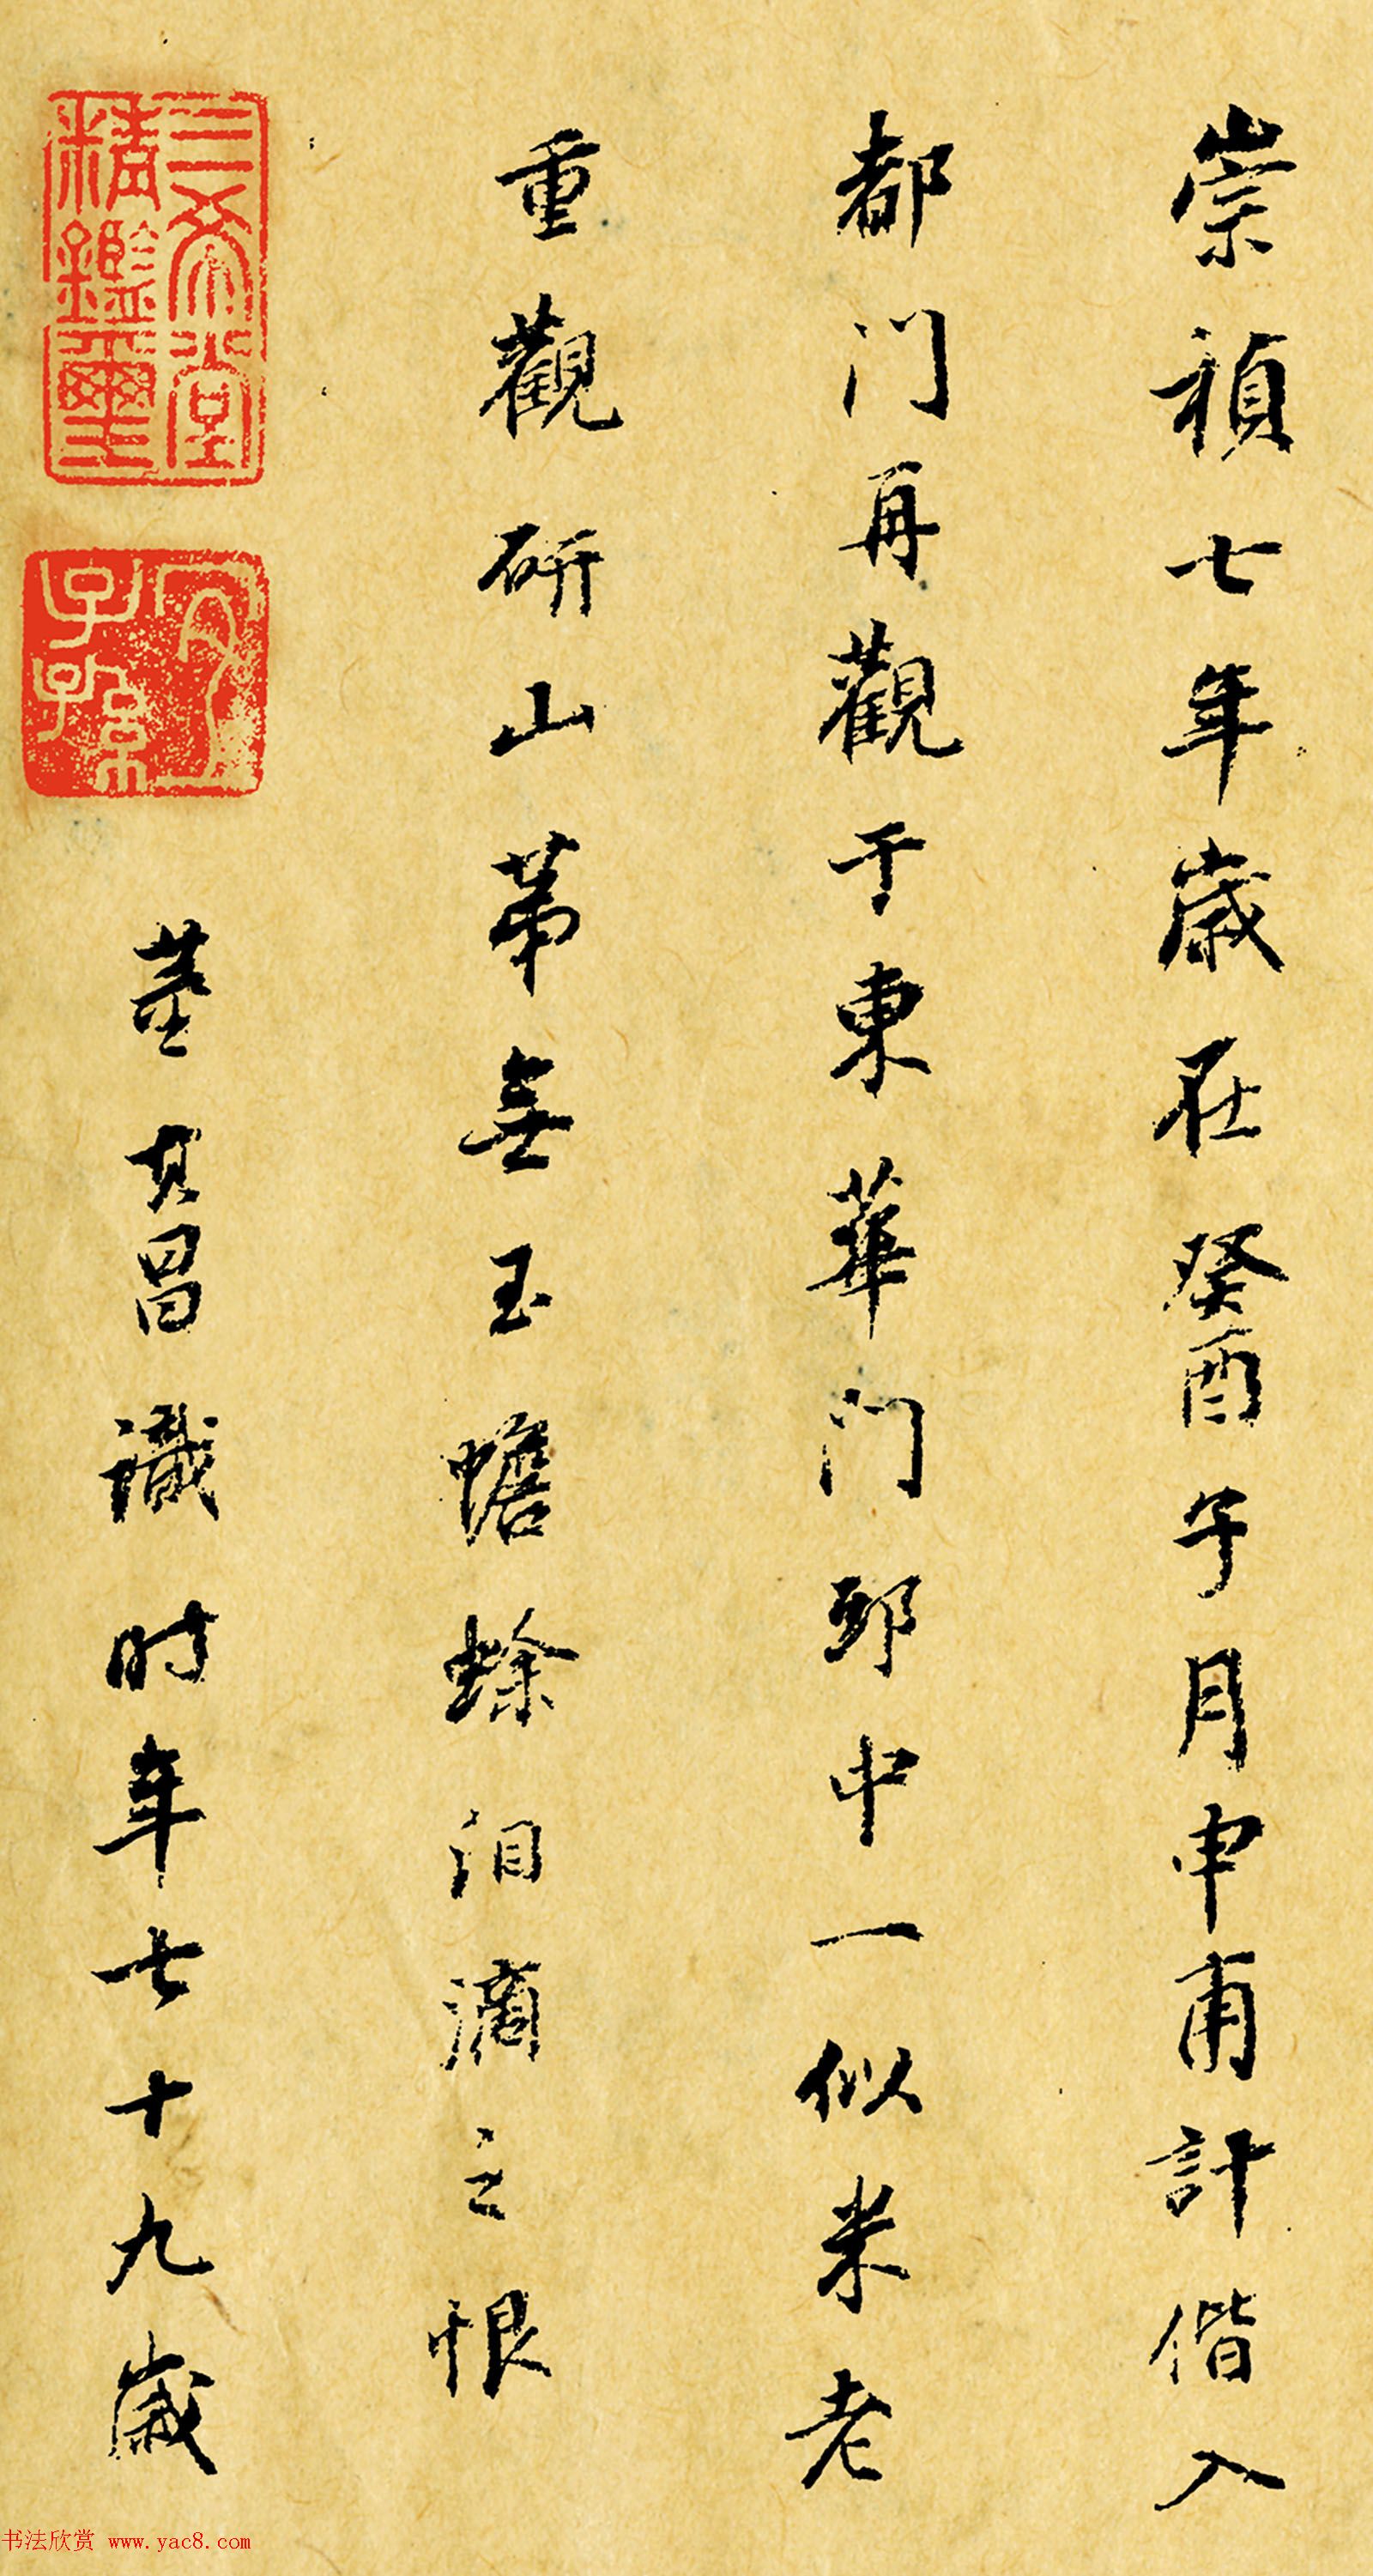 崇禎七年歲在癸酉子月申甫計偕入
都门再觀于東華门邸中一似米老
重觀研山第無玉蟾蜍泪滴之恨
董其昌識时年七十九歲
三希堂
精鑑璽
宜
子孫
书法欣赏 www.yac8.com